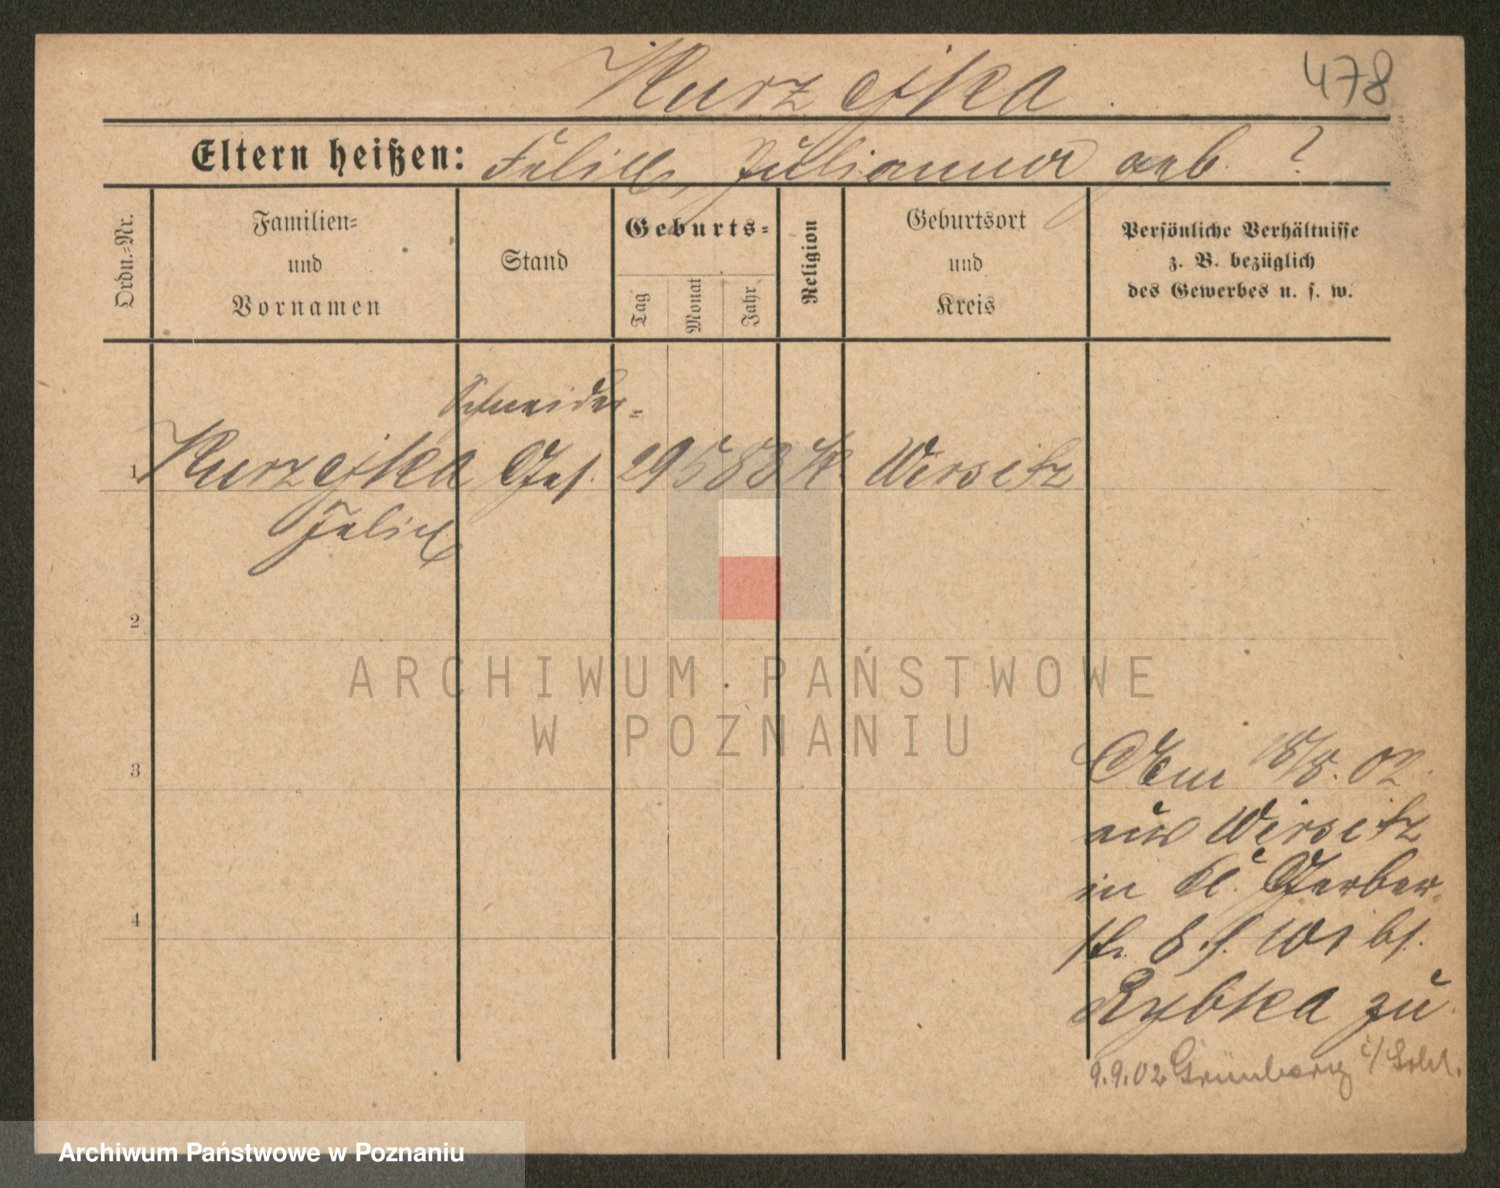 Kurzejka
478
Eltern heißen: Felix, Julianna geb. ?
Ordn.-Nr.
Familien-
und
Vornamen
Stand
Geburts-
Tag
Monat
Jahr
Religion
Geburtsort
und
Kreis
Persönliche Verhältnisse
z. B. bezüglich
des Gewerbes u. s. w.
Schneider-
1 Kurzejka Ges. 29 5 83 K. Wirsitz
Felix
2
3
4
ARCHIWUM PAŃSTWOWE
W POZNANIU
18/8. 02.
aus Wirsitz
in Kl. Gerber-
str. 8 b/
Rybka zu
9.9.02 Grünberg i/Schl.
Archiwum Państwowe w Poznaniu